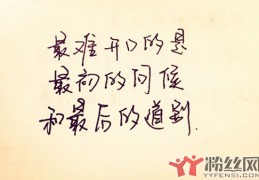 最难开口的是
最初的问候
和最后的道别.
粉丝网
YYFENSI.COM